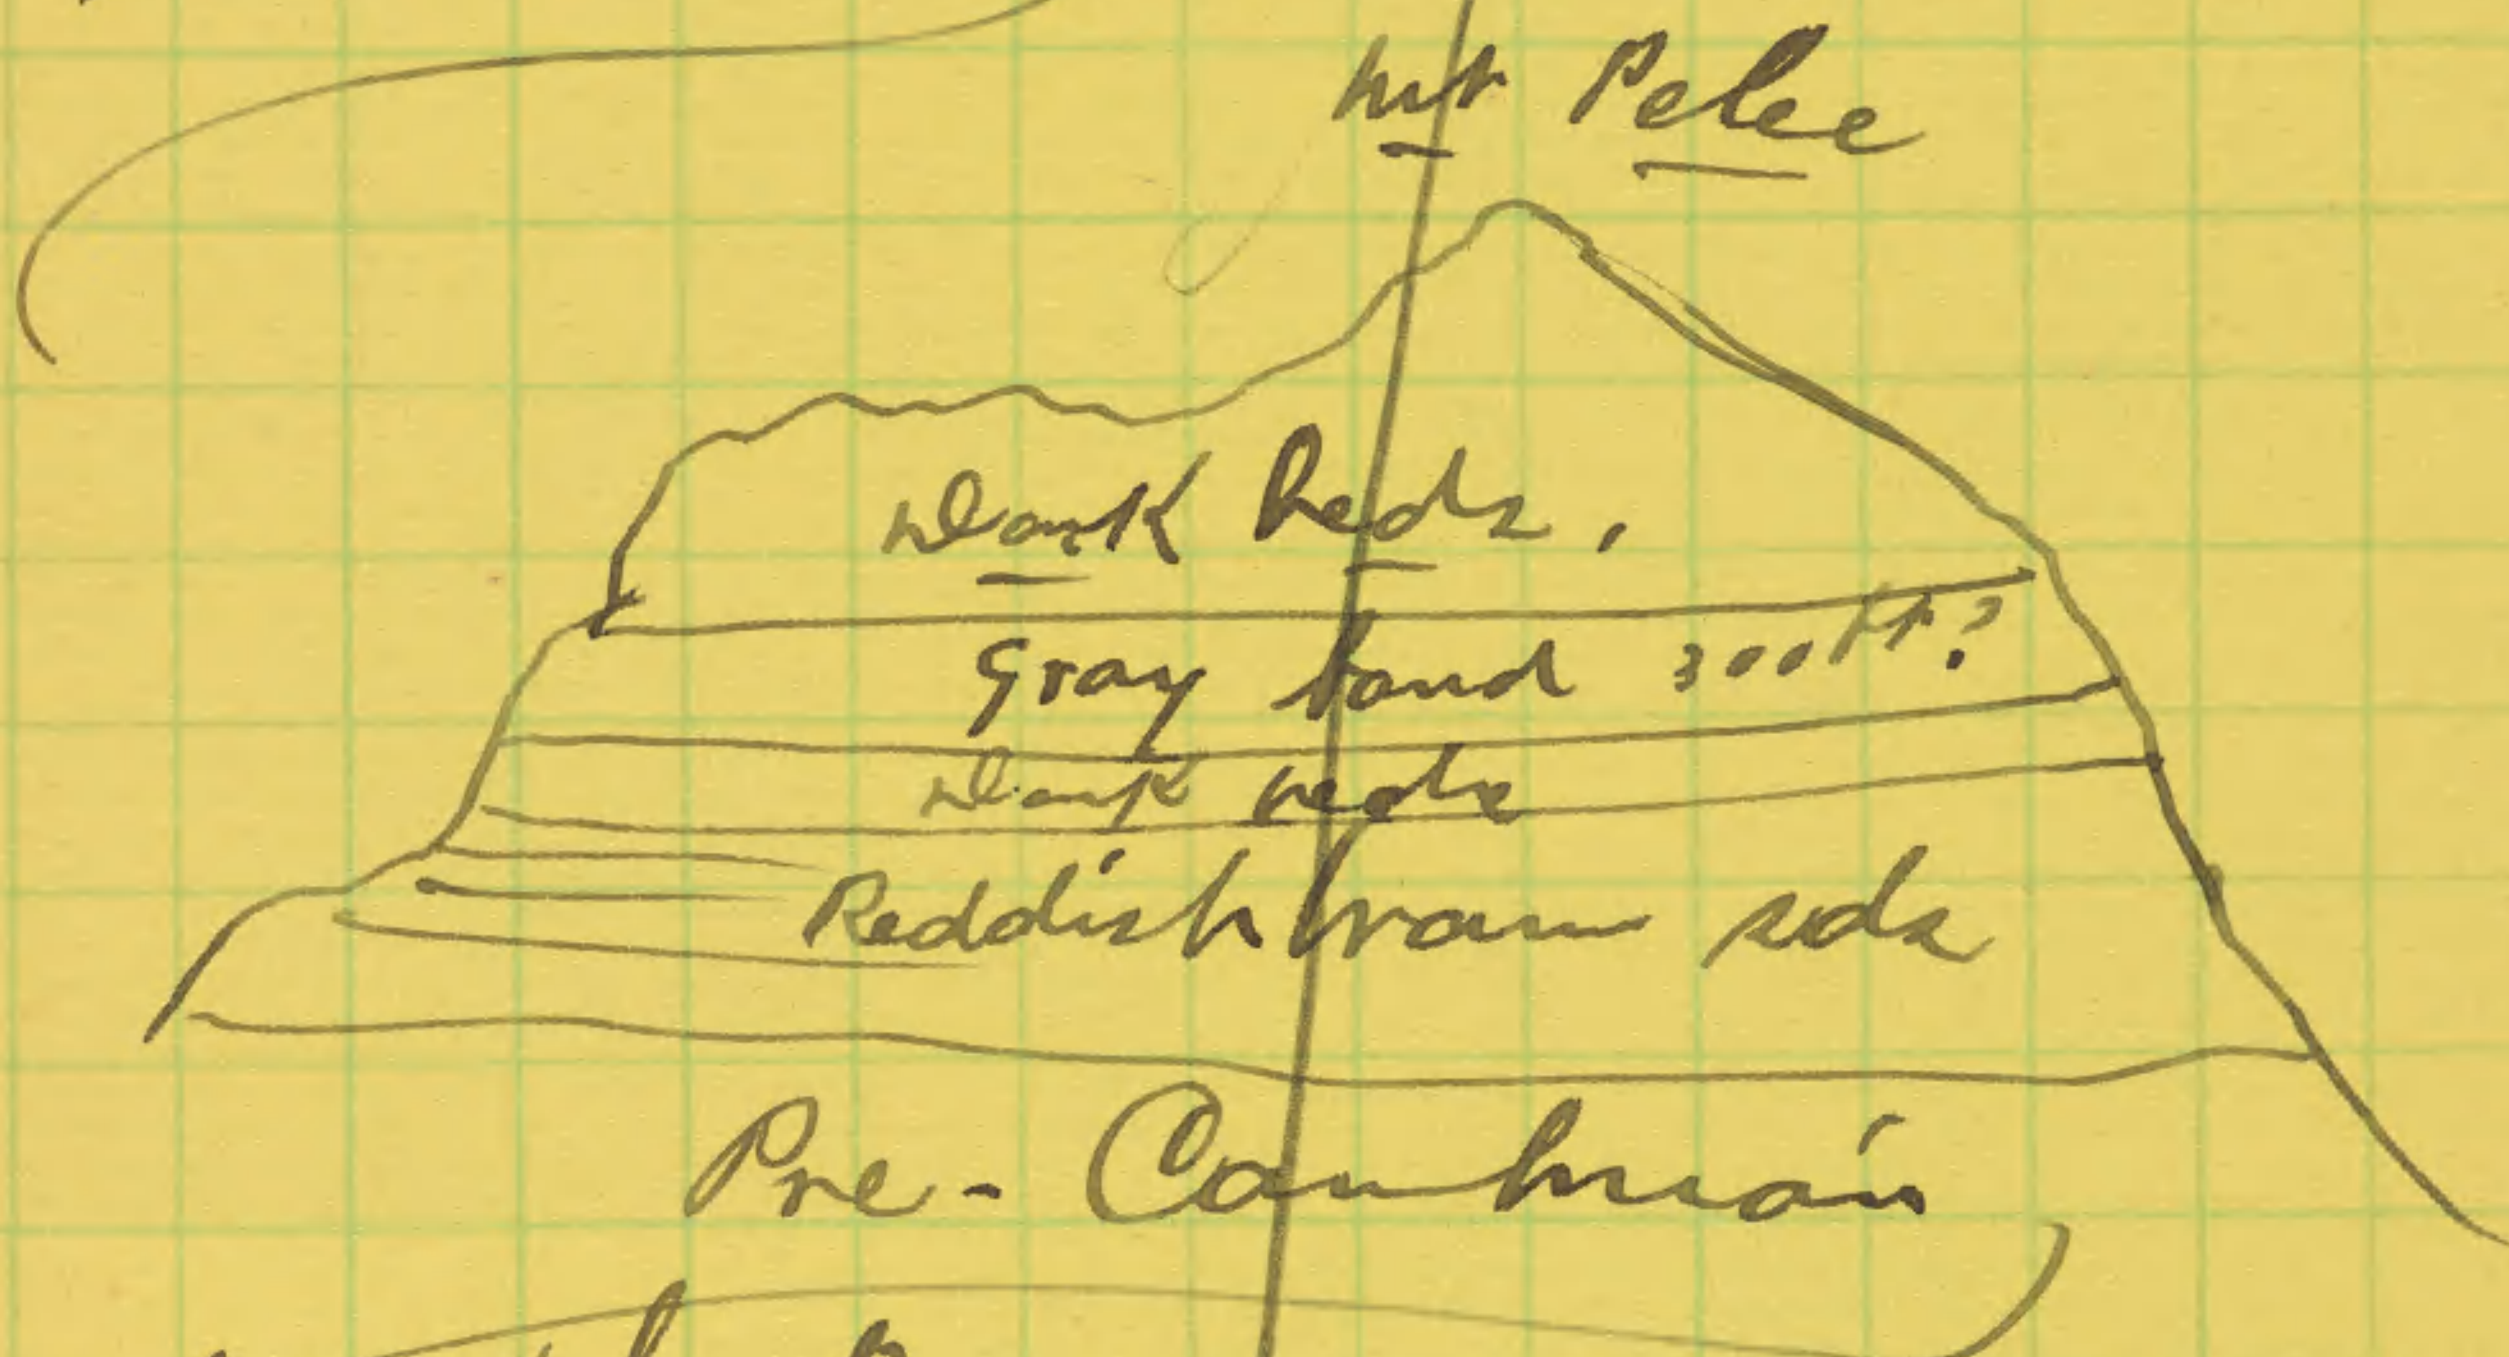 Mt Pelee
Dark beds.
Gray band 300 ft?
Dark beds
Reddish brown sds
Pre-Cambrian